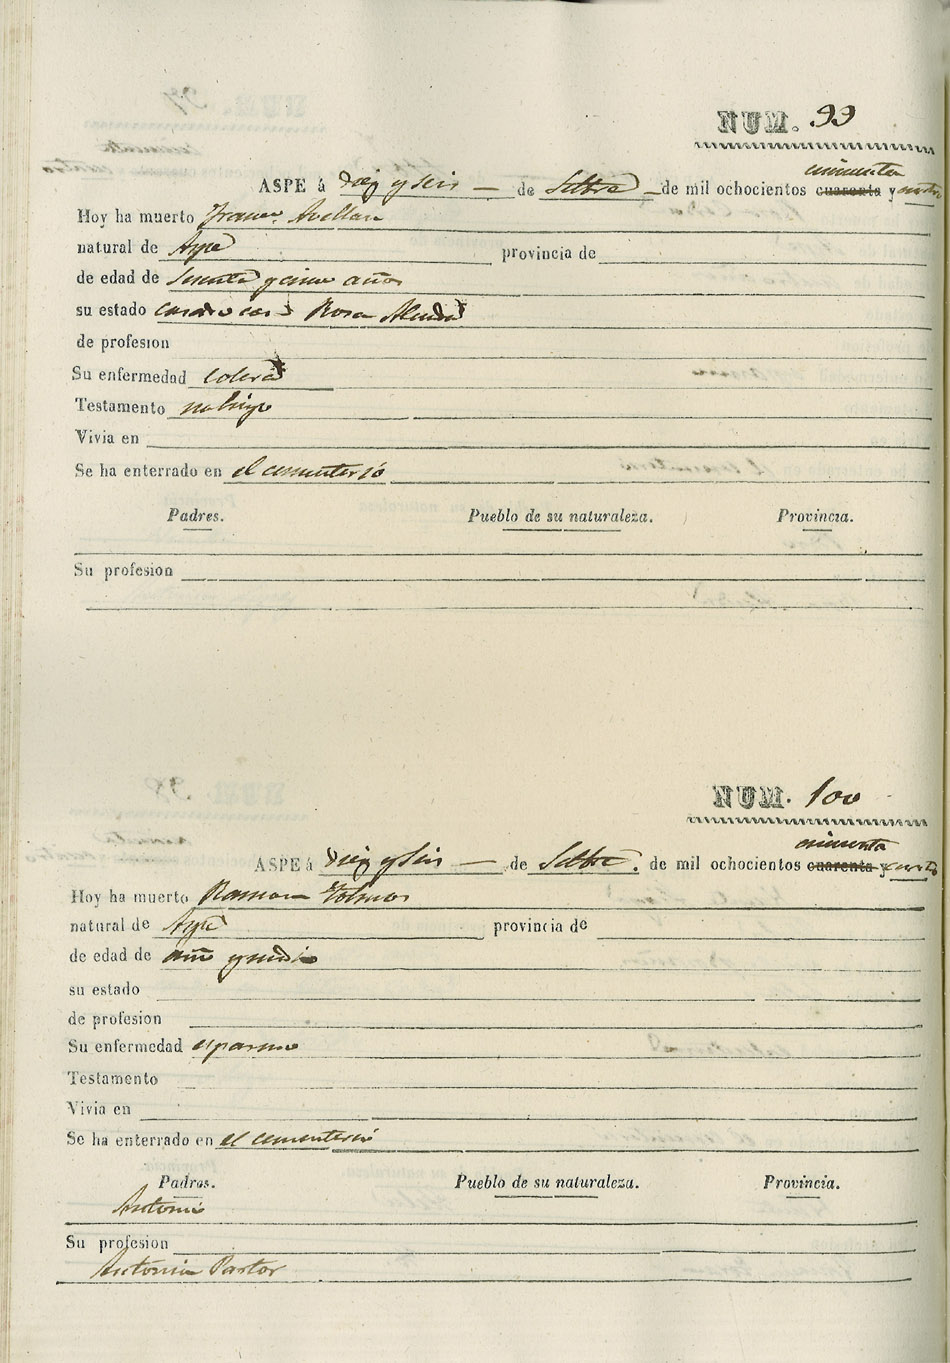 NUM. 99
cincuenta
ASPE á diez y seis de Setbre de mil ochocientos cuarenta y cuatro
Hoy ha muerto Franco. Avellan
natural de Aspe provincia de
de edad de sesenta y cinco años
su estado casado con Rosa Almodo
de profesion
Su enfermedad colera
Testamento no hizo
Vivia en
Se ha enterrado en el cementerio
Padres. Pueblo de su naturaleza. Provincia.
Su profesion
NUM. 100
cincuenta
ASPE á diez y seis de Setbre. de mil ochocientos cuarenta y cuatro
Hoy ha muerto Ramon
natural de Aspe provincia de
de edad de año y medio
su estado
de profesion
Su enfermedad espasmo
Testamento
Vivia en
Se ha enterrado en el cementerio
Padres. Pueblo de su naturaleza. Provincia.
Antonio
Su profesion
Antonia Pastor